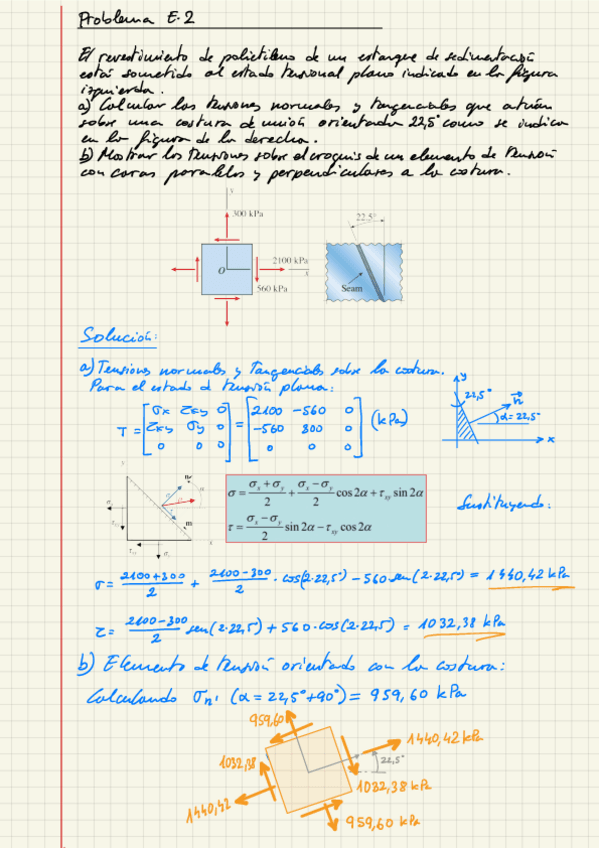 Problema E.2
El revestimiento de polietileno de un estanque de sedimentación
está sometido al estado tensional plano indicado en la figura
izquierda.
a) Calcular las tensiones normales y tangenciales que actúan
sobre una costura de unión orientada 22,5° como se indica
en la figura de la derecha.
b) Mostrar las tensiones sobre el croquis de un elemento de tensión
con caras paralelas y perpendiculares a la costura.
y
300 kPa
22.5°
2100 kPa
O
x
560 kPa
Seam
Solución:
a) Tensiones normales y Tangenciales sobre la costura.
Para el estado de tensión plana:
T = [σx τxy 0; τxy σy 0; 0 0 0] = [2100 -560 0; -560 300 0; 0 0 0] (kPa)
y
22,5°
n
α = 22,5°
x
σ = (σx + σy)/2 + (σx − σy)/2 cos 2α + τxy sin 2α
τ = (σx − σy)/2 sin 2α − τxy cos 2α
Sustituyendo:
σ = (2100+300)/2 + (2100-300)/2 · cos(2·22,5°) - 560 sen(2·22,5°) = 1440,42 kPa
τ = (2100-300)/2 sen(2·22,5) + 560·cos(2·22,5) = 1032,38 kPa
b) Elemento de tensión orientado con la costura:
Calculando σn' (α = 22,5°+90°) = 959,60 kPa
959,60
1440,42 kPa
1032,38
22,5°
1032,38 kPa
1440,42
959,60 kPa